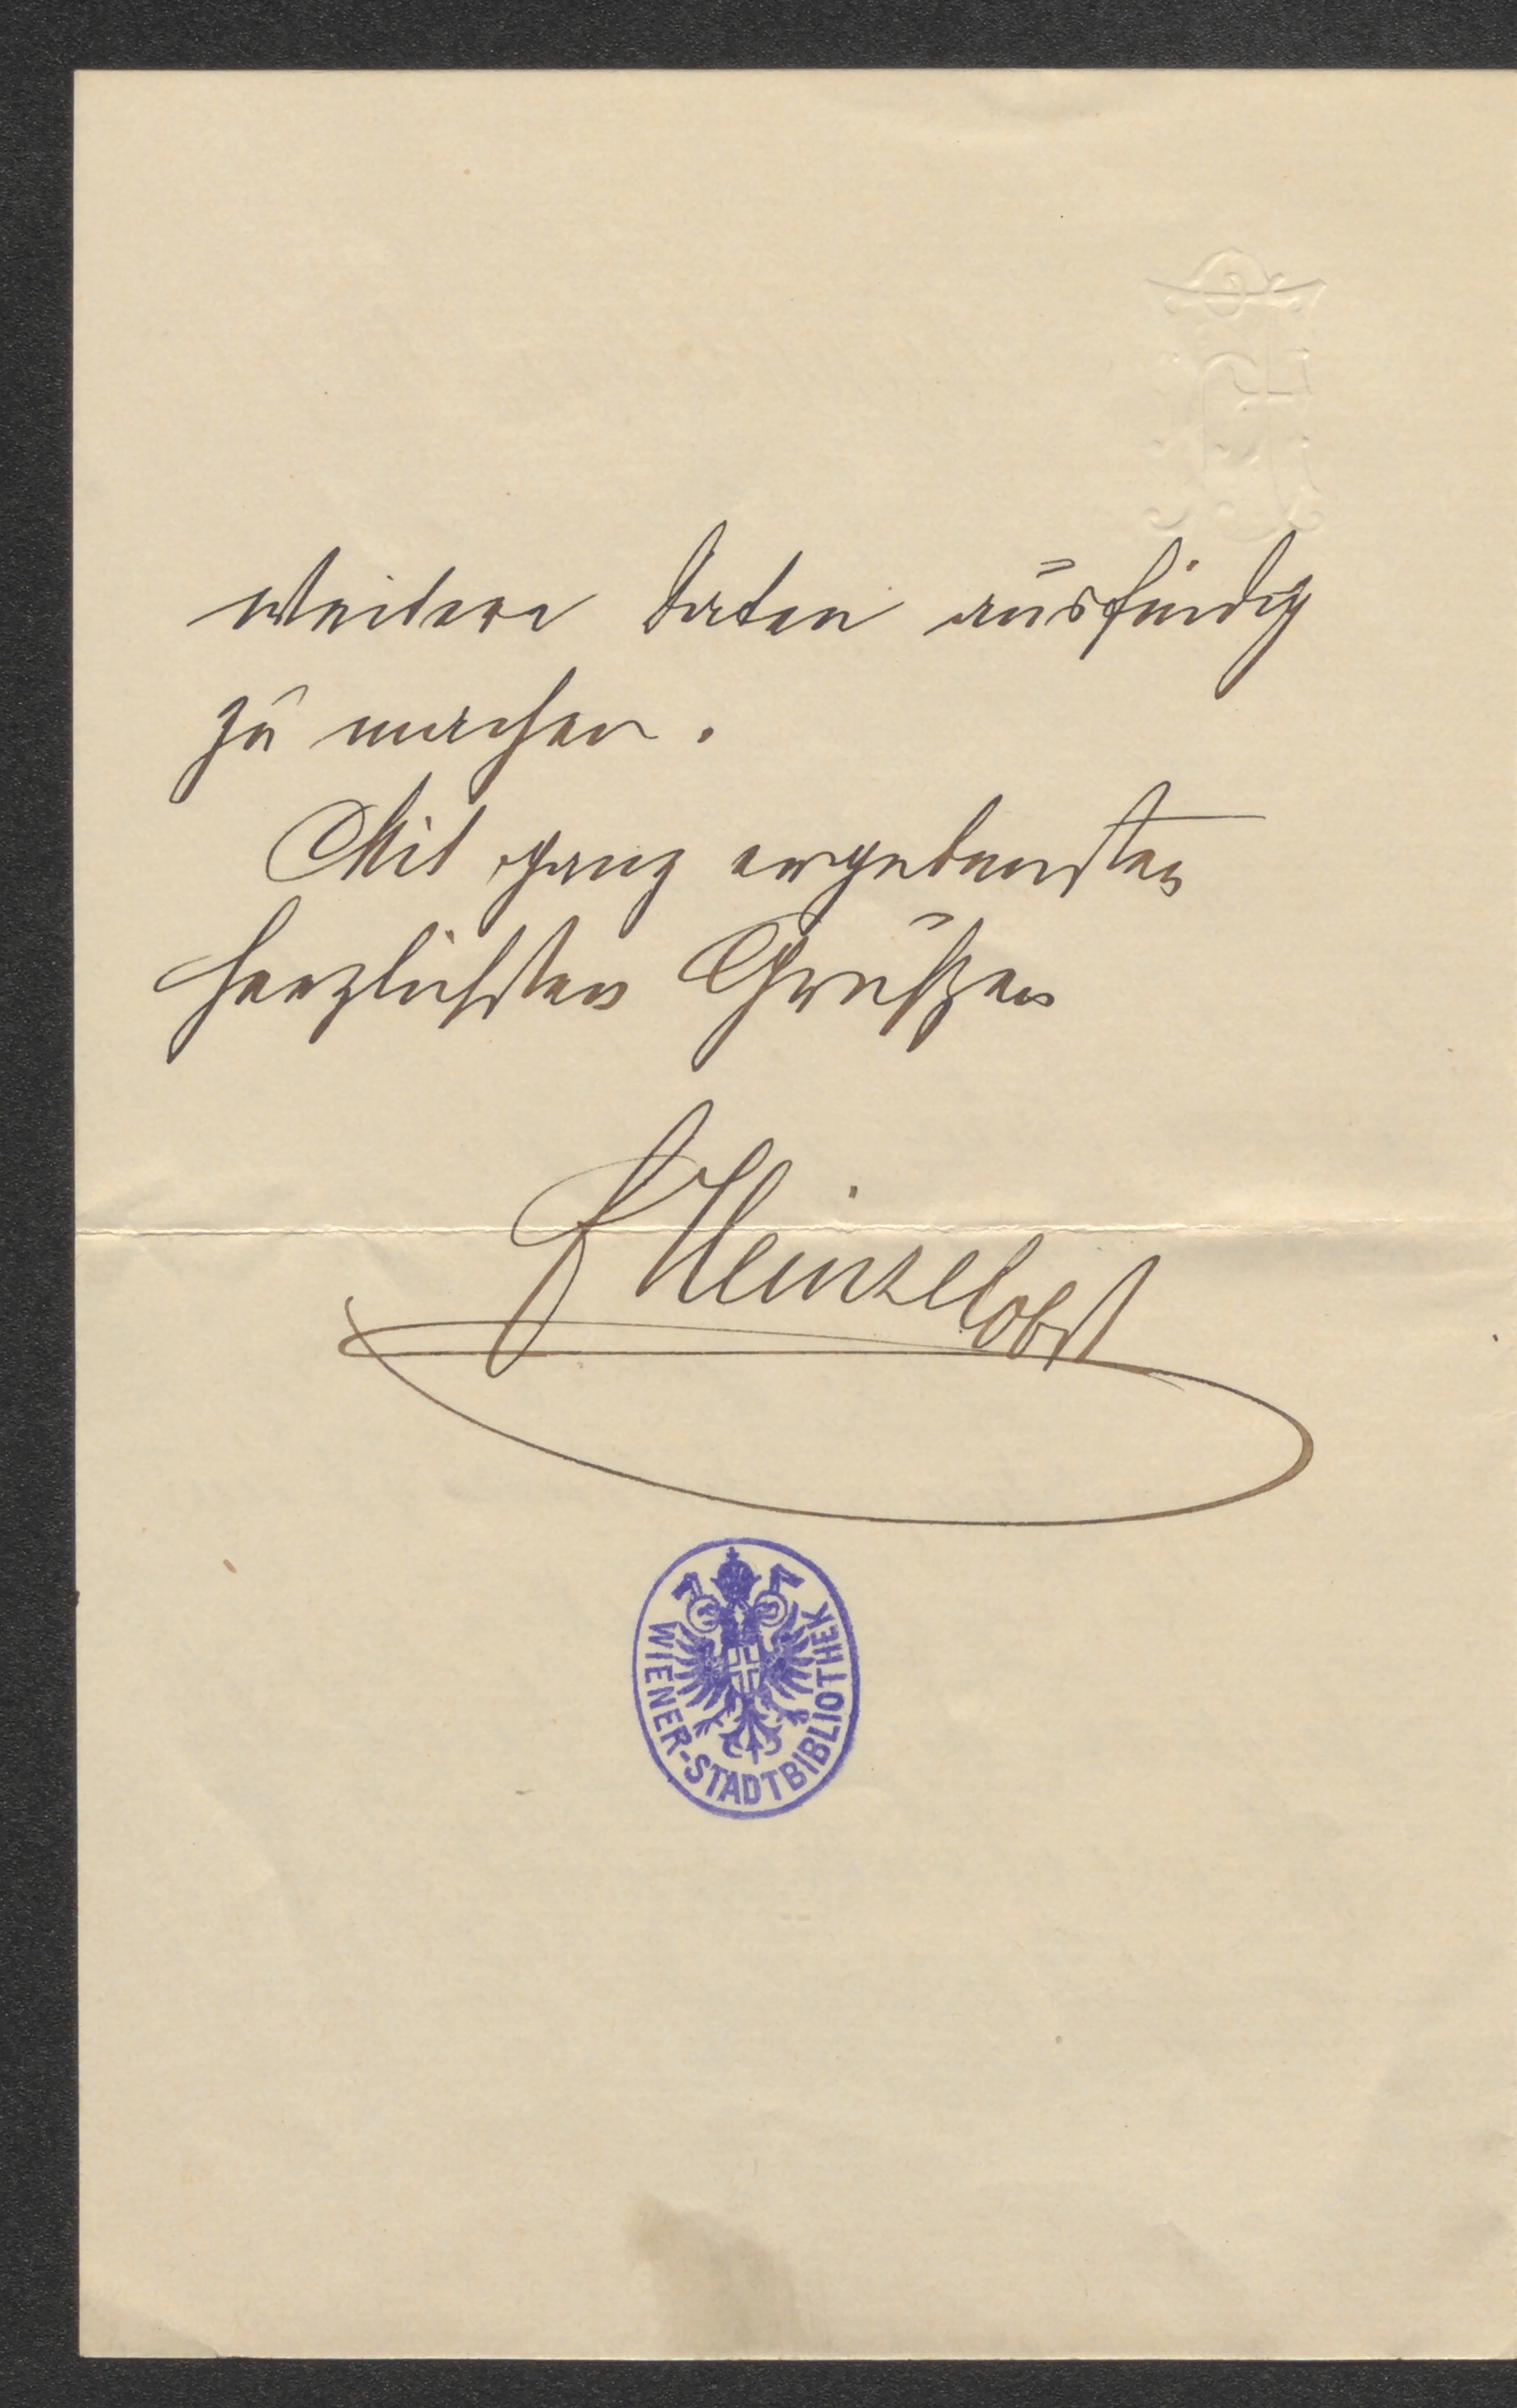 weitere Daten ausfindig
zu machen.
Mit ganz ergebensten
herzlichsten Grüßen
WIENER-STADTBIBLIOTHEK